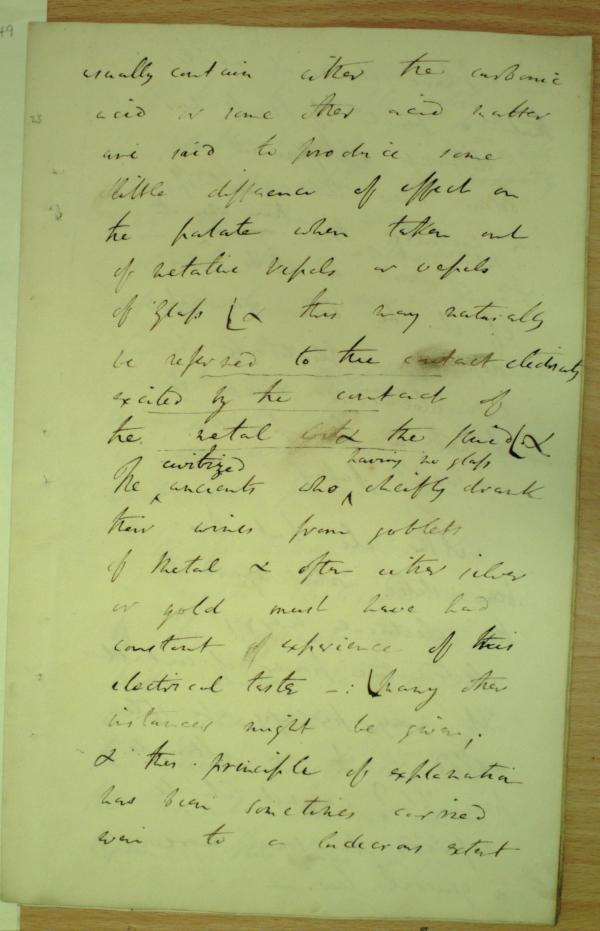 usually contain either the carbonic
acid or some other acid matter
are said to produce some
little difference of effect on
the palate when taken out
of metallic vessels or vessels
of glass [& this may naturally
be referred to the contact electricity
excited by the contact of
the metal & the fluid [&
civilized having no glass
The ancients who cheifly drank
their wines from goblets
of metal & often either silver
or gold must have had
constant experience of this
electrical taste -: [many other
instances might be given;
& this principle of explanation
has been sometimes carried
even to a ludicrous extent